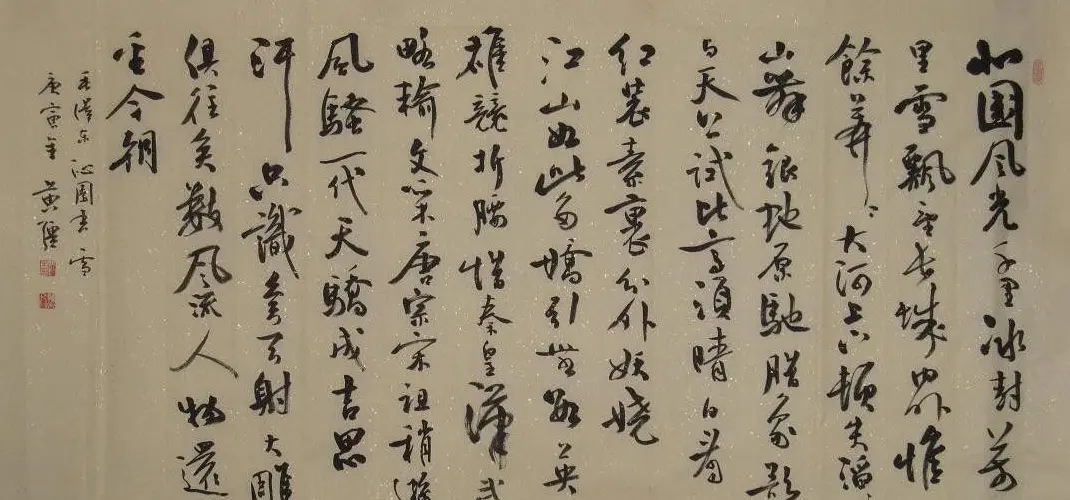 北國风光千里冰封萬
里雪飄望长城内外惟
餘莽〻大河上下頓失滔〻
山舞銀蛇原馳腊象欲
与天公試比高須晴日看
红装素裹分外妖娆
江山如此多嬌引無數英
雄競折腰惜秦皇漢武
略輸文采唐宗宋祖稍遜
風騷一代天驕成吉思
汗只識彎弓射大雕
俱往矣數风流人物還
看今朝
毛澤东 沁園春 雪
庚寅年 黄疆